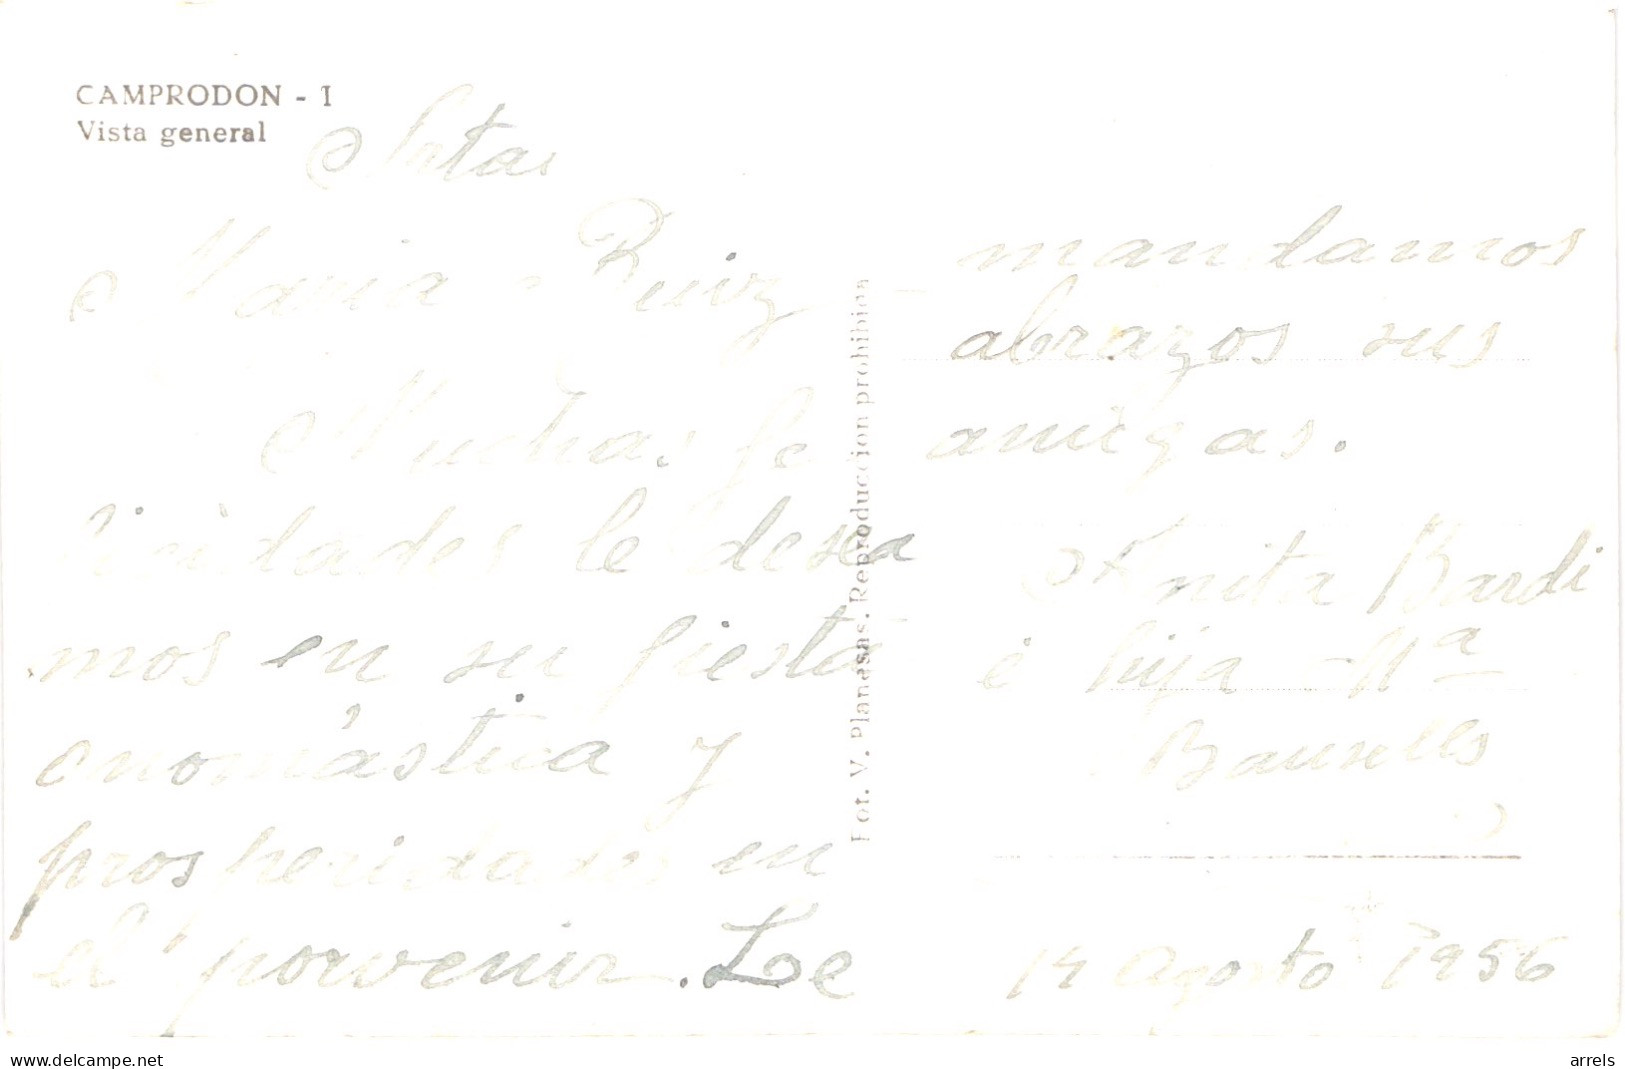 CAMPRODON - 1
Vista general
Srtas
Maria - Ruiz
Muchas fe
licidades le desea
mos en su fiesta
onomástica y
prosperidades en
el porvenir. Le
Fot. V. Planasas. Reproduccion prohibida
mandamos
abrazos sus
amigas.
Anita Bardi
é hija Mª
Bausells
14 Agosto 1956
www.delcampe.net
arrels